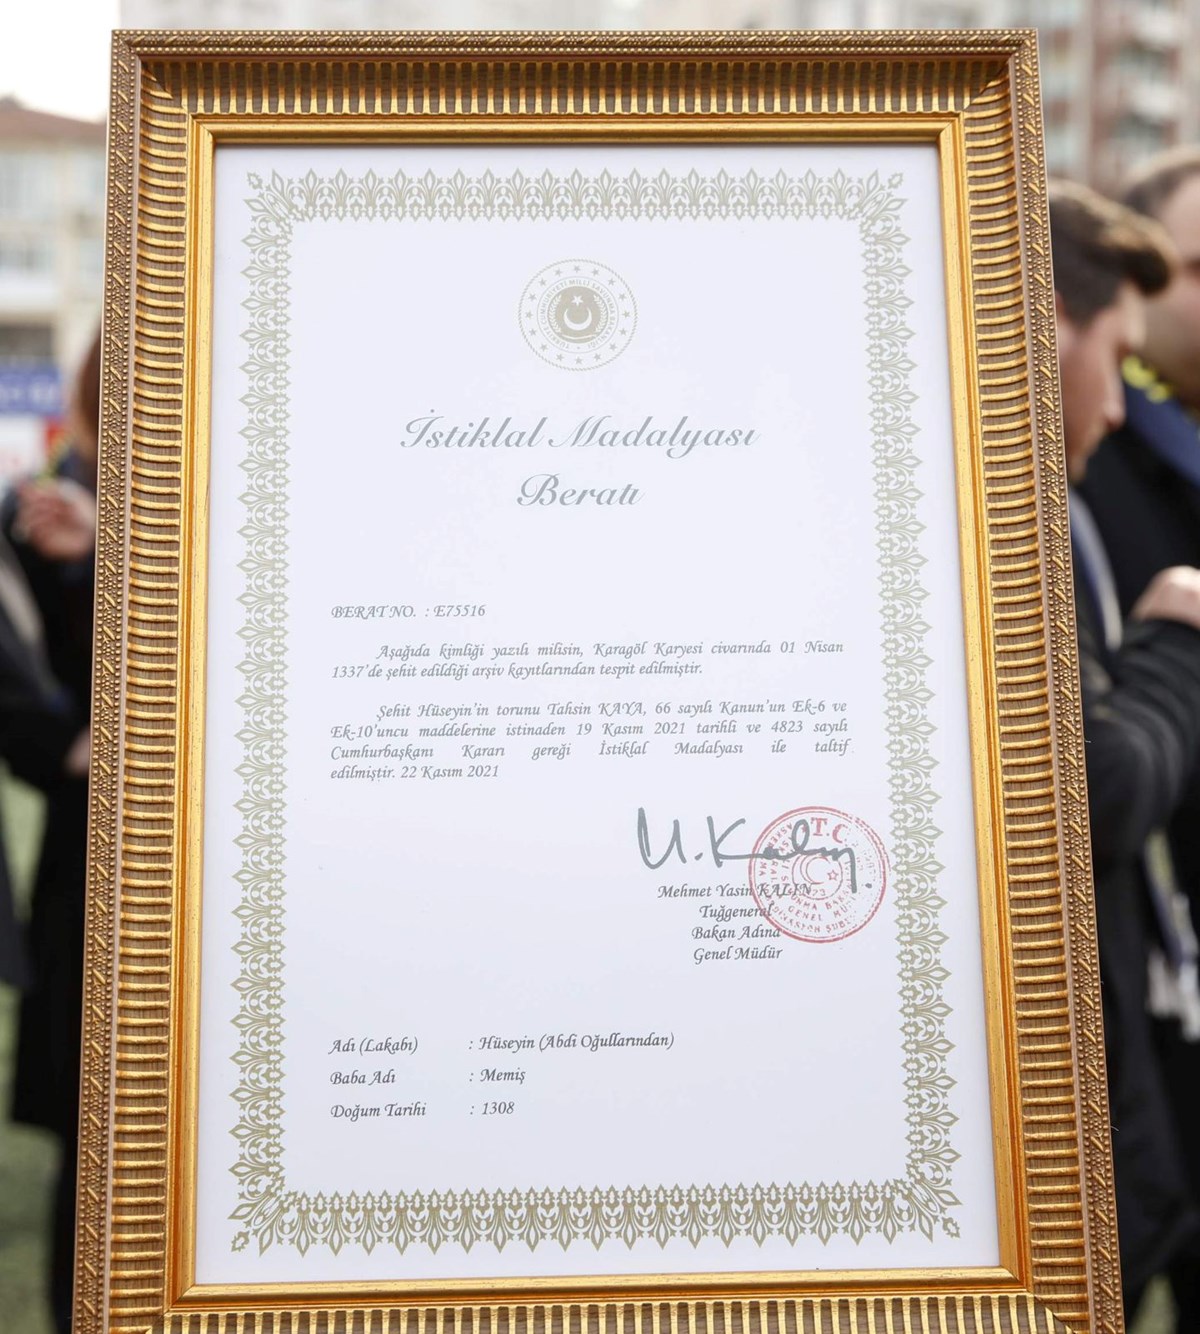 İstiklal Madalyası
Beratı
BERAT NO. : E75516
Aşağıda kimliği yazılı milisin, Karagöl Karyesi civarında 01 Nisan
1337'de şehit edildiği arşiv kayıtlarından tespit edilmiştir.
Şehit Hüseyin'in torunu Tahsin KAYA, 66 sayılı Kanun'un Ek-6 ve
Ek-10'uncu maddelerine istinaden 19 Kasım 2021 tarihli ve 4823 sayılı
Cumhurbaşkanı Kararı gereği İstiklal Madalyası ile taltif
edilmiştir. 22 Kasım 2021
T.C.
Mehmet Yasin KALIN
Tuğgeneral
Bakan Adına
Genel Müdür
Adı (Lakabı) : Hüseyin (Abdi Oğullarından)
Baba Adı : Memiş
Doğum Tarihi : 1308